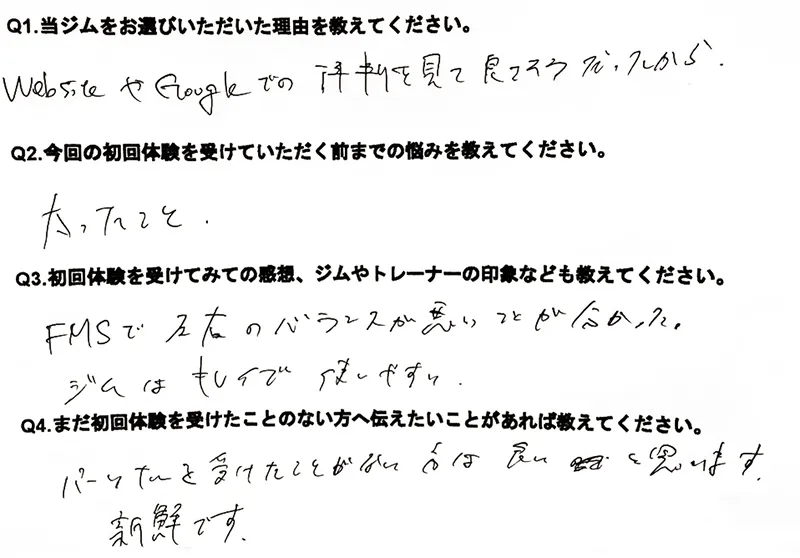 Q1.当ジムをお選びいただいた理由を教えてください。
WebsiteやGoogleでの評判を見て良さそうだったから.
Q2.今回の初回体験を受けていただく前までの悩みを教えてください。
太ったこと.
Q3.初回体験を受けてみての感想、ジムやトレーナーの印象なども教えてください。
FMSで左右のバランスが悪いことが分かった。
ジムはキレイで使いやすい.
Q4.まだ初回体験を受けたことのない方へ伝えたいことがあれば教えてください。
パーソナルを受けたことがない方は良いと思います.
新鮮です.